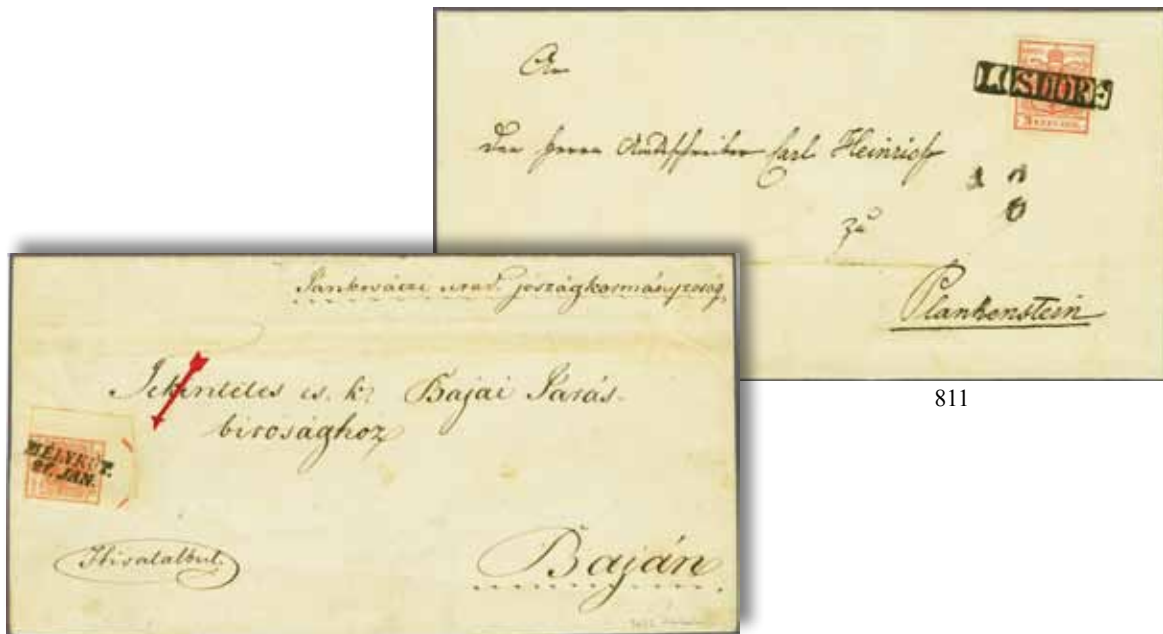 An
LOSDORF
den Herrn Amtsschreiber Carl Heinrich
zu
Plankenstein
811
Jankováczi urad. jószágkormányzóság
Tekintetes cs. k. Bajai Járás-
birosághoz
MÉLYKÚT.
27. JAN.
Hivatalbul.
Baján.